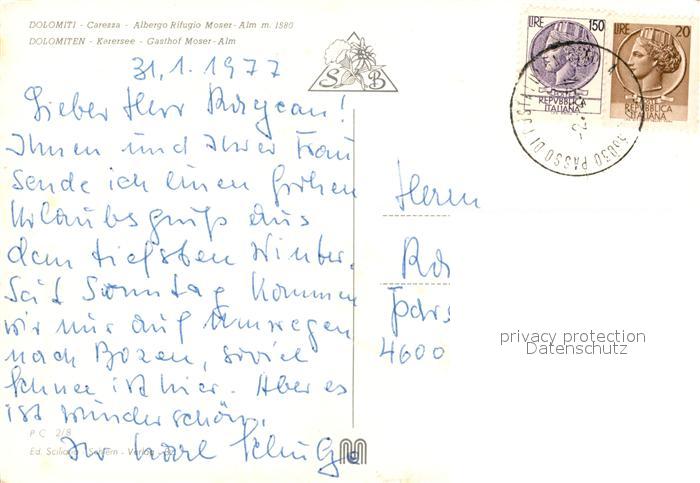 DOLOMITI - Carezza - Albergo Rifugio Moser-Alm m. 1580
DOLOMITEN - Karersee - Gasthof Moser-Alm
S B
LIRE 150
REPVBBLICA
ITALIANA
LIRE 20
REPVBBLICA
ITALIANA
PASSO DI COSTA
31.1.1977
Lieber Herr
Ihnen und Ihrer Frau
sende ich einen frohen
Urlaubsgruß aus
dem tiefsten Winter.
Seit Sonntag kommen
wir nur auf Umwegen
nach Bozen, soviel
Schnee ist hier. Aber es
ist wunderschön.
Ihr Karl
Herrn
4600
privacy protection
Datenschutz
P C 2/8